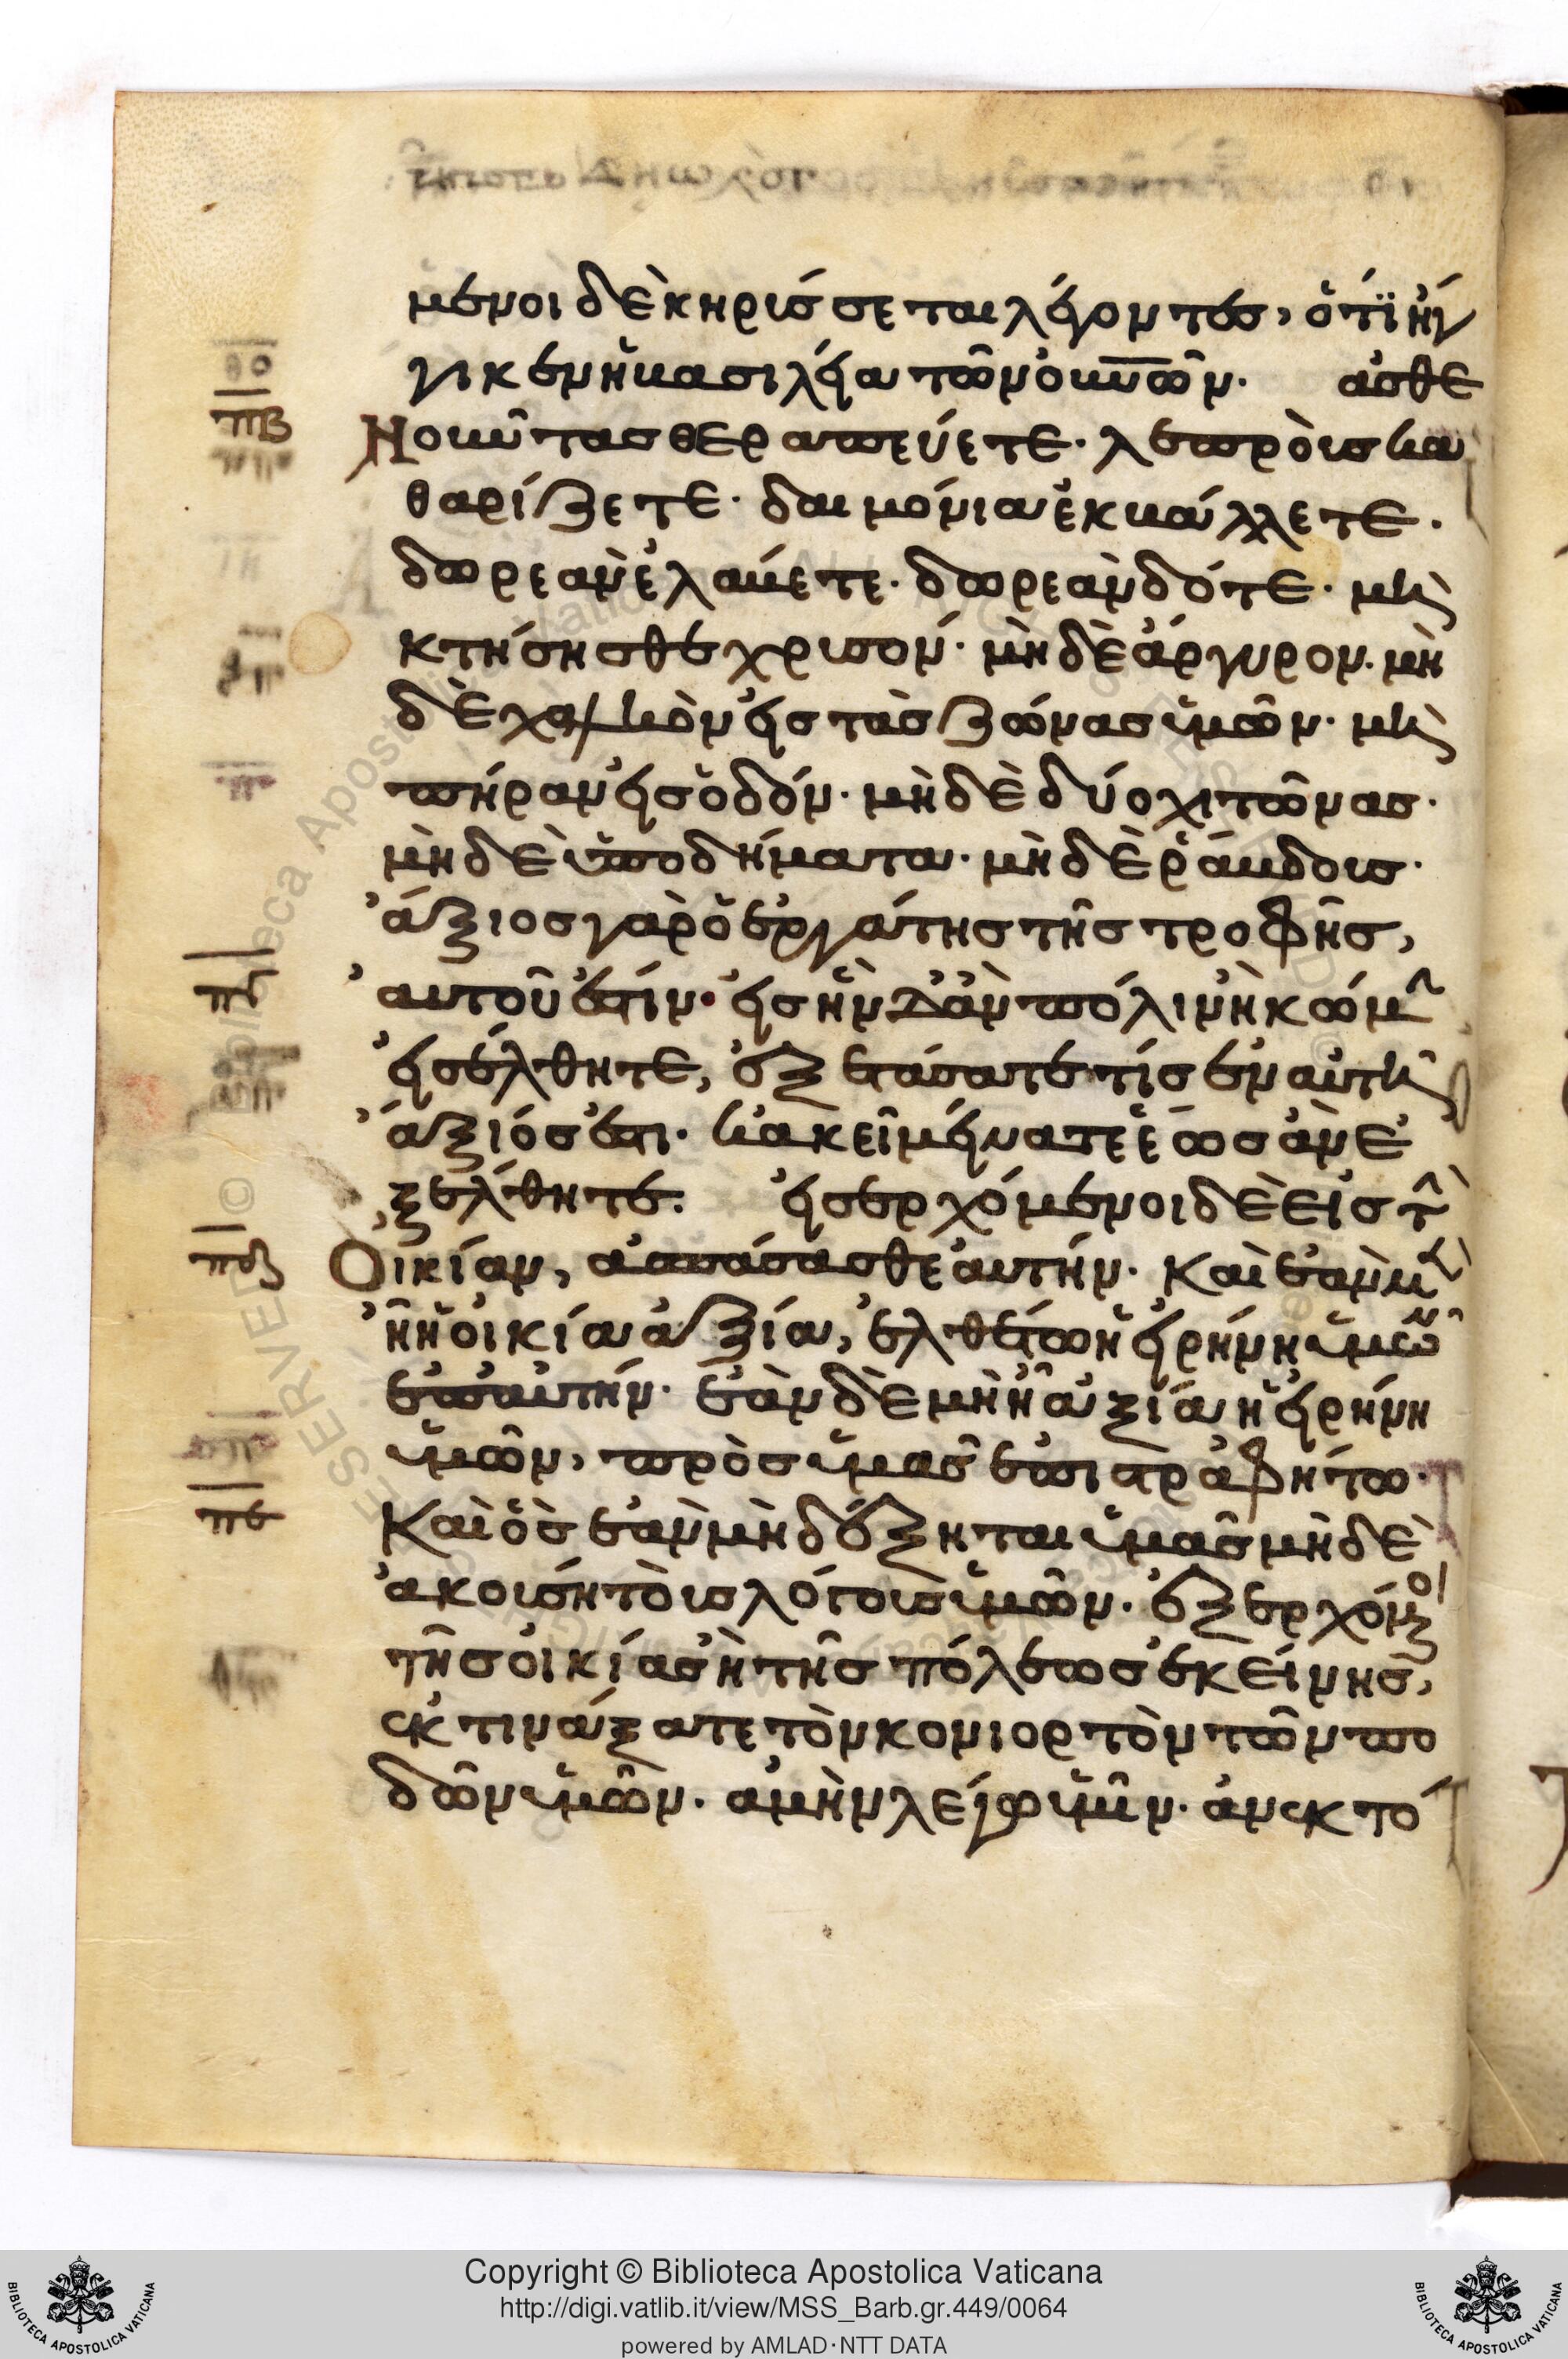 μένοι δὲ κηρίσσεται λέγοντες, ὅτϊ ἠγ
γικεν ἡ βασιλεία τῶν οὐ̅ν̅ῶν. ἀσθε
Νοῦντας θεραπεύετε. λεπρὸις κα
θαρίζετε. δαιμόνια ἐκβάλλετε.
δωρεὰν ἐλάβετε. δωρεὰν δότε. μὴ
κτήσησθε χρισον. μὴδὲ ἄργυρον. μὴ
δὲ χαλκὸν εἰς τὰς ζώνας ὑμῶν. μὴ
πήραν εἰς ὁδόν. μὴδὲ δύο χιτῶνας.
μὴδὲ ὑποδήματα. μὴδὲ ῥάβδοις.
ἄξιος γὰρ ὁ ἐργάτης τῆς τροφῆς,
αυτοῦ ἐστίν. εἰς ἣν δ' ἂν πόλιν ἢ κώμ
εἰσέλθητε, ἐξετάσατε τίς ἐν αὐτῆ
ἄξιός ἐστι. κἀκεῖ μείνατε ἕως ἂν ἐ
ξέλθητε. εἰσερχόμενοι δὲ εἰς τ
Οἰκίαν, ἀσπάσασθε ἀυτήν. Καὶ ἐὰν μ
ἦ ἡ οἰκία ἀξία, ἐλθέτω ἡ εἰρήνη ὑμῶ
ἐπ' αὐτήν. ἐὰν δὲ μὴ ἦ ἀξία ἡ εἰρήνη
ὑμῶν, πρὸς ὑμᾶς ἐπιστραφήτω.
Καὶ ὃς ἐὰν μὴ δέξηται ὑμᾶς μὴδὲ
ἀκοισή τὸις λότοις ὑμῶν. ἐξερχόμ οι
τῆς οἰκίας ἢ τῆς πόλεως ἐκείνης,
ἐκτινάξατε τὸν κονιορτὸν τῶν πο
δῶν ὑμῶν. ἀμὴν λέγω ὑμῖν. ἀνεκτό
πβ
πγ
πδ
πε
Copyright © Biblioteca Apostolica Vaticana
http://digi.vatlib.it/view/MSS_Barb.gr.449/0064
powered by AMLAD·NTT DATA
BIBLIOTECA APOSTOLICA VATICANA
BIBLIOTECA APOSTOLICA VATICANA